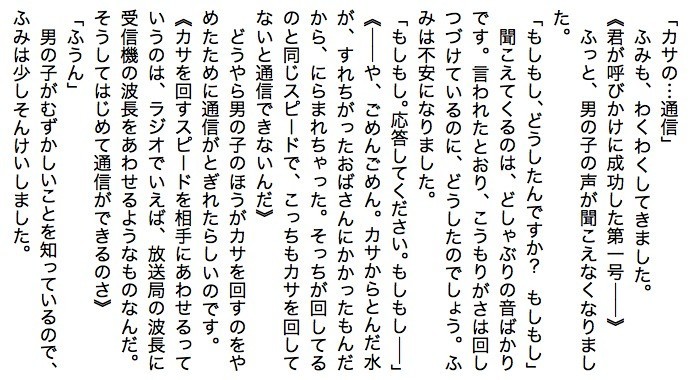 「カサの…通信」
　ふみも、わくわくしてきました。
《君が呼びかけに成功した第一号――》
　ふっと、男の子の声が聞こえなくなりまし
た。
「もしもし、どうしたんですか？　もしもし」
　聞こえてくるのは、どしゃぶりの音ばかり
です。言われたとおり、こうもりがさは回し
つづけているのに、どうしたのでしょう。ふ
みは不安になりました。
「もしもし。応答してください。もしもし――」
《――や、ごめんごめん。カサからとんだ水
が、すれちがったおばさんにかかったもんだ
から、にらまれちゃった。そっちが回してる
のと同じスピードで、こっちもカサを回して
ないと通信できないんだ》
　どうやら男の子のほうがカサを回すのをや
めたために通信がとぎれたらしいのです。
《カサを回すスピードを相手にあわせるって
いうのは、ラジオでいえば、放送局の波長に
受信機の波長をあわせるようなものなんだ。
そうしてはじめて通信ができるのさ》
「ふうん」
　男の子がむずかしいことを知っているので、
ふみは少しそんけいしました。